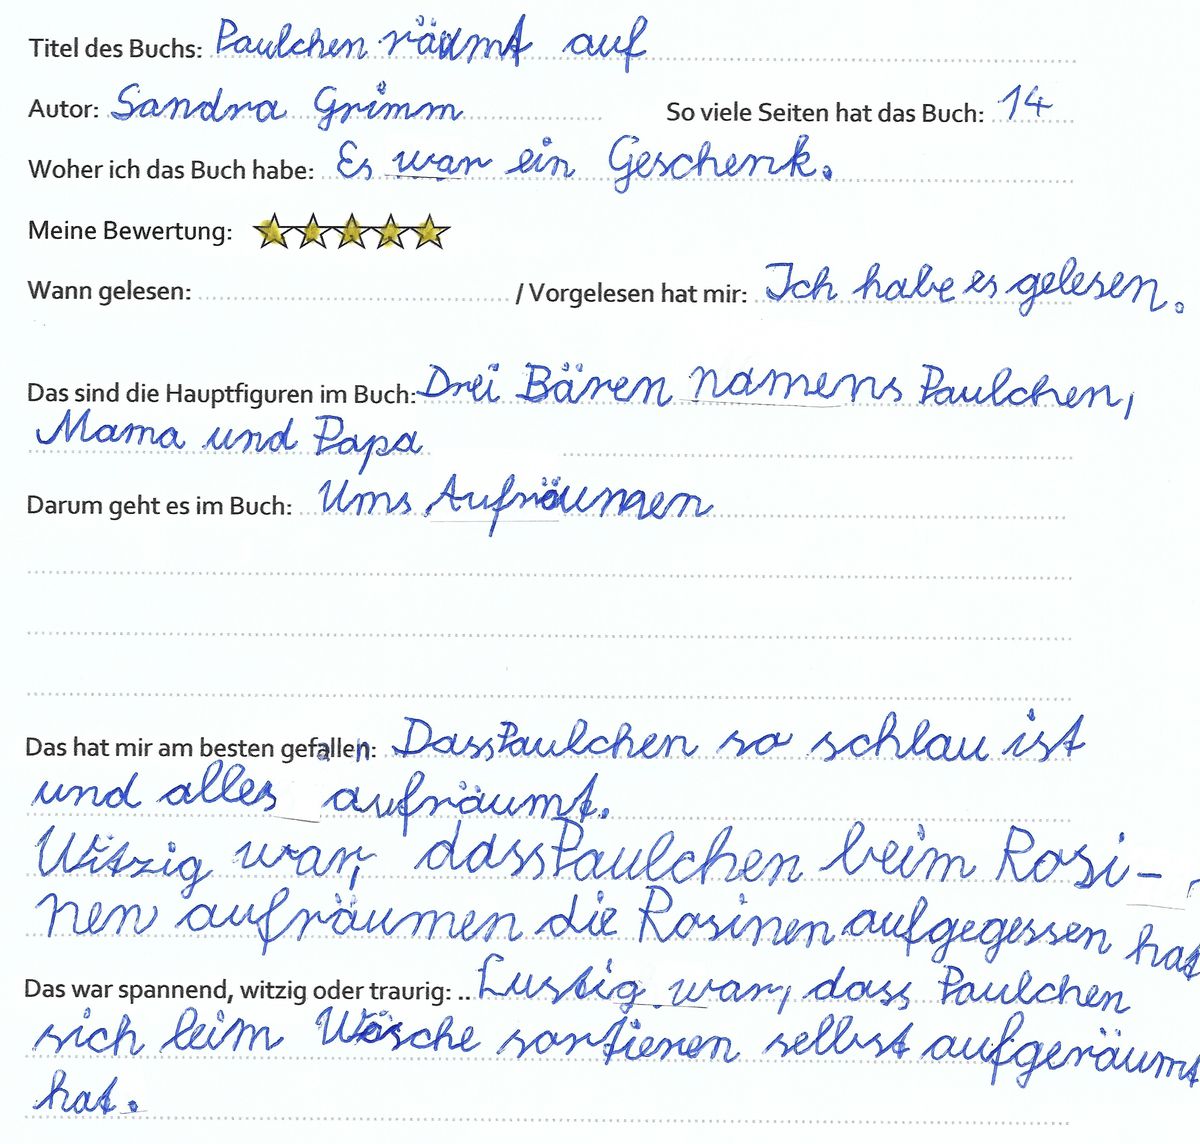 Titel des Buchs: Paulchen räumt auf
Autor: Sandra Grimm So viele Seiten hat das Buch: 14
Woher ich das Buch habe: Es war ein Geschenk.
Meine Bewertung:
Wann gelesen: / Vorgelesen hat mir: Ich habe es gelesen.
Das sind die Hauptfiguren im Buch: Drei Bären namens Paulchen,
Mama und Papa
Darum geht es im Buch: Ums Aufräumen
Das hat mir am besten gefallen: Dass Paulchen so schlau ist
und alles aufräumt.
Witzig war, dass Paulchen beim Rosi-
nen aufräumen die Rosinen aufgegessen hat
Das war spannend, witzig oder traurig: .. Lustig war, dass Paulchen
sich beim Wäsche sortieren selbst aufgeräumt
hat.